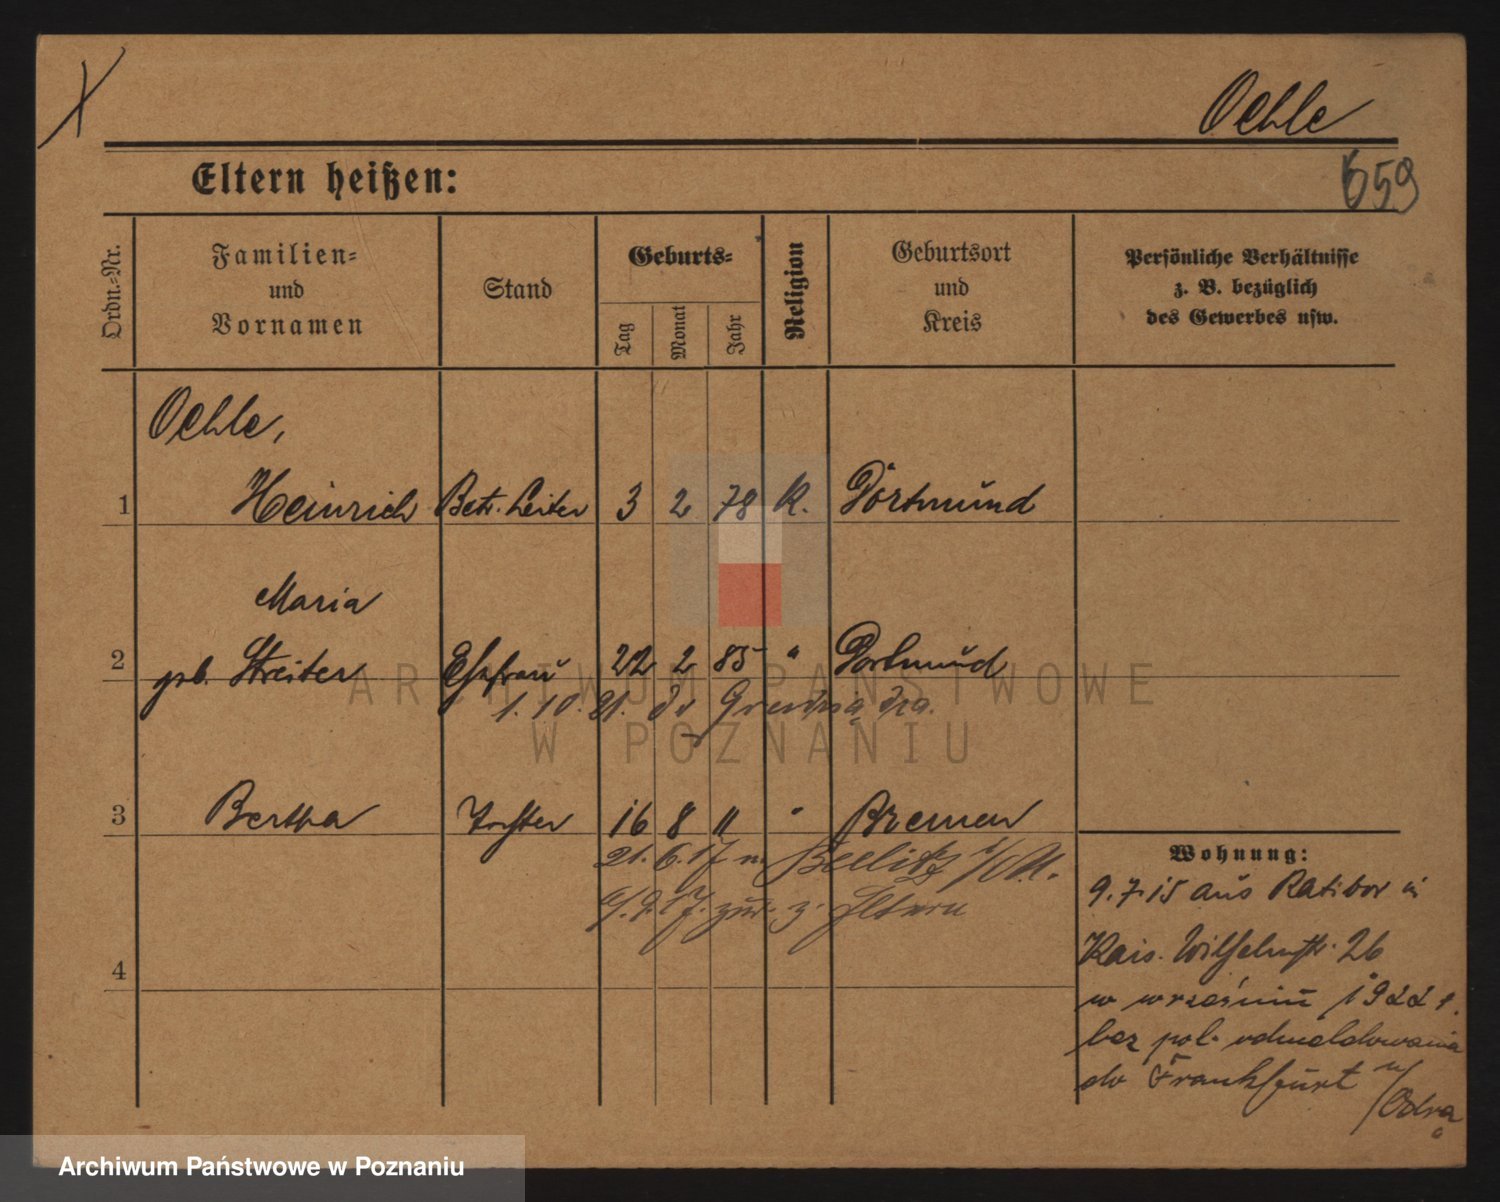 Oehle
659
Eltern heißen:
Ordn.-Nr.
Familien-
und
Vornamen
Stand
Geburts-
Tag
Monat
Jahr
Religion
Geburtsort
und
Kreis
Persönliche Verhältnisse
z. B. bezüglich
des Gewerbes usw.
Oehle,
1 Heinrich Betr. Leiter 3 2 78 K. Dortmund
Maria
2 gb. Streiter Ehefrau 22 2 85 " Dortmund
1. 10. 21. do
3 Bertha Tochter 16 8 11 " Bremen
21. 6. 17 n. Beelitz i/M.
9. 17. zur. z. Eltern
4
Wohnung:
9.7.15 aus Ratibor in
Kais. Wilhelmstr. 26
w wrześniu 1922 r.
bez pol. odmeldowania
do Frankfurt n/
Odrą
ARCHIWUM PAŃSTWOWE
W POZNANIU
Archiwum Państwowe w Poznaniu